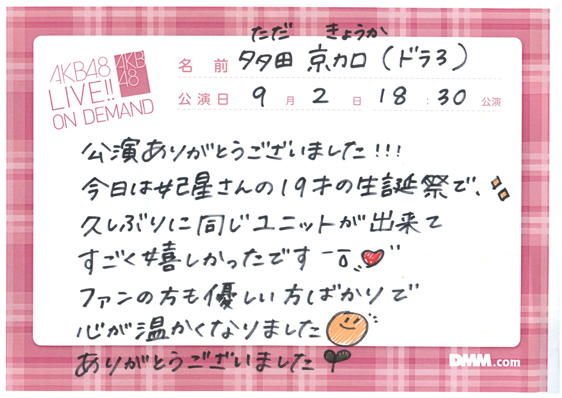 ただ きょうか
AKB48
LIVE!!
ON DEMAND
AKB
48
名前 多田 京加(ドラ3)
公演日 9月2日 18:30 公演
公演ありがとうございました!!!
今日は妃星さんの19才の生誕祭で、
久しぶりに同じユニットが出来て
すごく嬉しかったです
ファンの方も優しい方ばかりで
心が温かくなりました
ありがとうございました
DMM.com